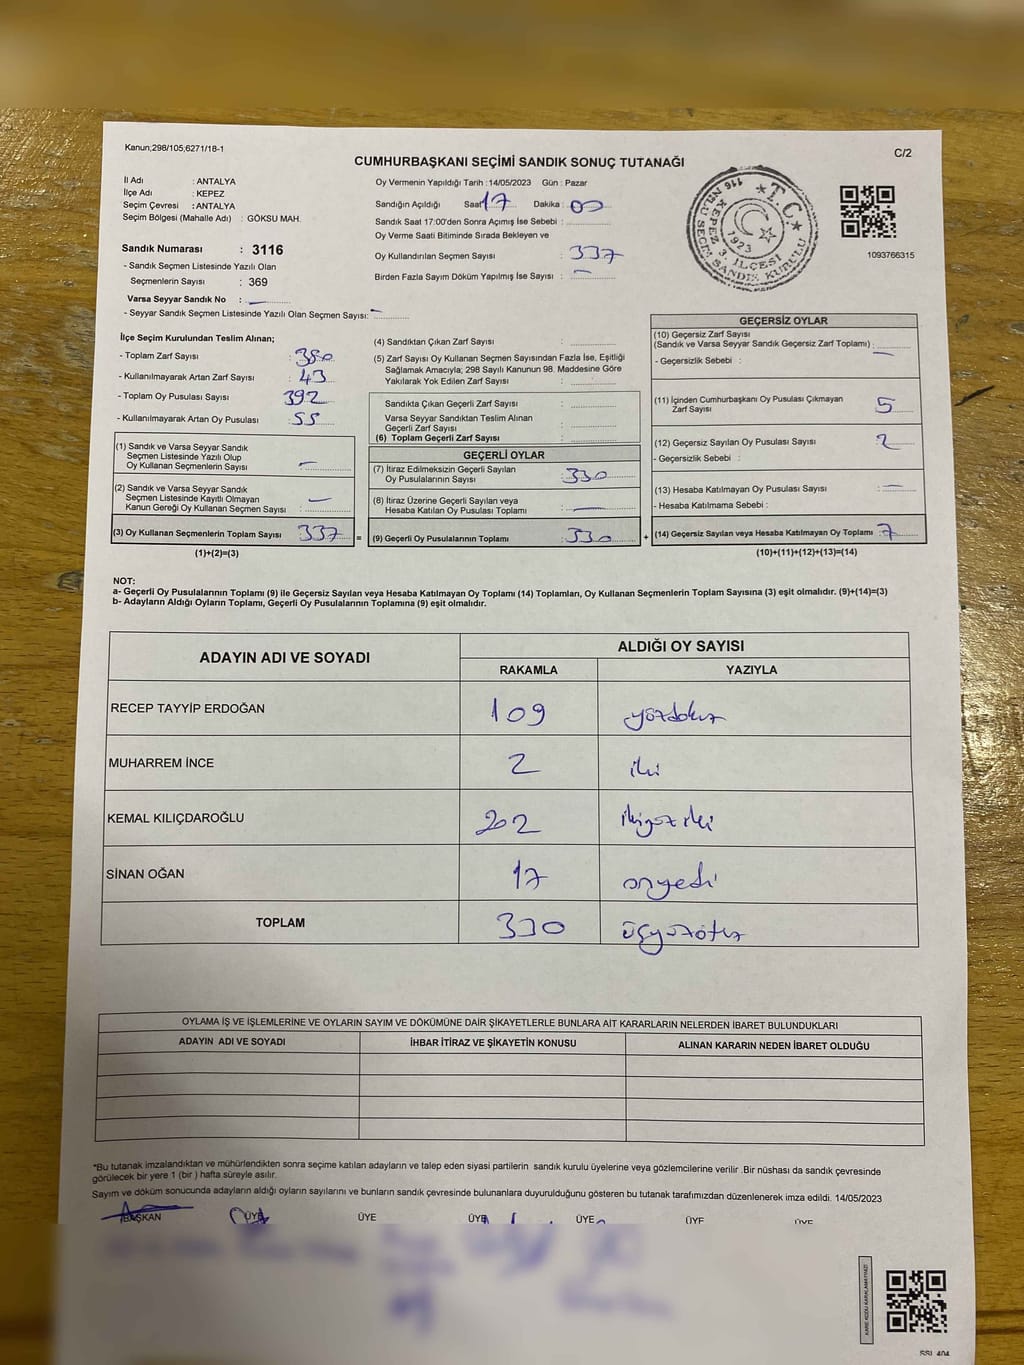 Kanun;298/105;6271/18-1
C/2
CUMHURBAŞKANI SEÇİMİ SANDIK SONUÇ TUTANAĞI
İl Adı : ANTALYA
İlçe Adı : KEPEZ
Seçim Çevresi : ANTALYA
Seçim Bölgesi (Mahalle Adı) : GÖKSU MAH.
Sandık Numarası : 3116
- Sandık Seçmen Listesinde Yazılı Olan
Seçmenlerin Sayısı : 369
Varsa Seyyar Sandık No : —
- Seyyar Sandık Seçmen Listesinde Yazılı Olan Seçmen Sayısı: —
Oy Vermenin Yapıldığı Tarih :14/05/2023 Gün : Pazar
Sandığın Açıldığı Saat 17 Dakika : 00
Sandık Saat 17:00'den Sonra Açımış İse Sebebi :
Oy Verme Saati Bitiminde Sırada Bekleyen ve
Oy Kullandırılan Seçmen Sayısı : 337
Birden Fazla Sayım Döküm Yapılmış İse Sayısı : —
T.C.
116 NOLU SEÇİM SANDIK KURULU
KEPEZ 3. İLÇESİ
1923
1093766315
İlçe Seçim Kurulundan Teslim Alınan;
- Toplam Zarf Sayısı : 380
- Kullanılmayarak Artan Zarf Sayısı : 43
- Toplam Oy Pusulası Sayısı : 392
- Kullanılmayarak Artan Oy Pusulası : 55
(1) Sandık ve Varsa Seyyar Sandık
Seçmen Listesinde Yazılı Olup
Oy Kullanan Seçmenlerin Sayısı : —
(2) Sandık ve Varsa Seyyar Sandık
Seçmen Listesinde Kayıtlı Olmayan
Kanun Gereği Oy Kullanan Seçmen Sayısı : —
(3) Oy Kullanan Seçmenlerin Toplam Sayısı : 337 =
(1)+(2)=(3)
(4) Sandıktan Çıkan Zarf Sayısı :
(5) Zarf Sayısı Oy Kullanan Seçmen Sayısından Fazla İse, Eşitliği
Sağlamak Amacıyla; 298 Sayılı Kanunun 98. Maddesine Göre
Yakılarak Yok Edilen Zarf Sayısı :
Sandıkta Çıkan Geçerli Zarf Sayısı :
Varsa Seyyar Sandıktan Teslim Alınan
Geçerli Zarf Sayısı :
(6) Toplam Geçerli Zarf Sayısı :
GEÇERLİ OYLAR
(7) İtiraz Edilmeksizin Geçerli Sayılan
Oy Pusulalarının Sayısı : 330
(8) İtiraz Üzerine Geçerli Sayılan veya
Hesaba Katılan Oy Pusulası Toplamı : —
(9) Geçerli Oy Pusulalarının Toplamı : 330 +
GEÇERSİZ OYLAR
(10) Geçersiz Zarf Sayısı
(Sandık ve Varsa Seyyar Sandık Geçersiz Zarf Toplamı) : —
- Geçersizlik Sebebi :
(11) İçinden Cumhurbaşkanı Oy Pusulası Çıkmayan
Zarf Sayısı 5
(12) Geçersiz Sayılan Oy Pusulası Sayısı : 2
- Geçersizlik Sebebi :
(13) Hesaba Katılmayan Oy Pusulası Sayısı : —
- Hesaba Katılmama Sebebi :
(14) Geçersiz Sayılan veya Hesaba Katılmayan Oy Toplamı : 7
(10)+(11)+(12)+(13)=(14)
NOT:
a- Geçerli Oy Pusulalarının Toplamı (9) ile Geçersiz Sayılan veya Hesaba Katılmayan Oy Toplamı (14) Toplamları, Oy Kullanan Seçmenlerin Toplam Sayısına (3) eşit olmalıdır. (9)+(14)=(3)
b- Adayların Aldığı Oyların Toplamı, Geçerli Oy Pusulalarının Toplamına (9) eşit olmalıdır.
ADAYIN ADI VE SOYADI ALDIĞI OY SAYISI
RAKAMLA YAZIYLA
RECEP TAYYİP ERDOĞAN 109 yüzdokuz
MUHARREM İNCE 2 iki
KEMAL KILIÇDAROĞLU 202 ikiyüziki
SİNAN OĞAN 17 onyedi
TOPLAM 330 üçyüzotuz
OYLAMA İŞ VE İŞLEMLERİNE VE OYLARIN SAYIM VE DÖKÜMÜNE DAİR ŞİKAYETLERLE BUNLARA AİT KARARLARIN NELERDEN İBARET BULUNDUKLARI
ADAYIN ADI VE SOYADI İHBAR İTİRAZ VE ŞİKAYETİN KONUSU ALINAN KARARIN NEDEN İBARET OLDUĞU
*Bu tutanak imzalandıktan ve mühürlendikten sonra seçime katılan adayların ve talep eden siyasi partilerin sandık kurulu üyelerine veya gözlemcilerine verilir .Bir nüshası da sandık çevresinde
görülecek bir yere 1 (bir ) hafta süreyle asılır.
Sayım ve döküm sonucunda adayların aldığı oyların sayılarını ve bunların sandık çevresinde bulunanlara duyurulduğunu gösteren bu tutanak tarafımızdan düzenlenerek imza edildi. 14/05/2023
BAŞKAN ÜYE ÜYE ÜYE ÜYE ÜYE ÜYE
KARE KODU KARALAMAYINIZ!